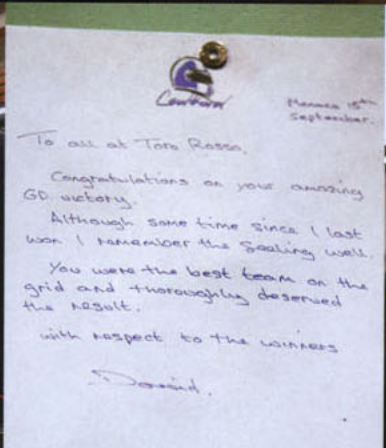 Coulthard
Monaco 15th
September.
To all at Toro Rosso,
Congratulations on your amazing
GP victory.
Although some time since I last
won I remember the feeling well.
You were the best team on the
grid and thoroughly deserved
the result.
with respect to the winners
David.